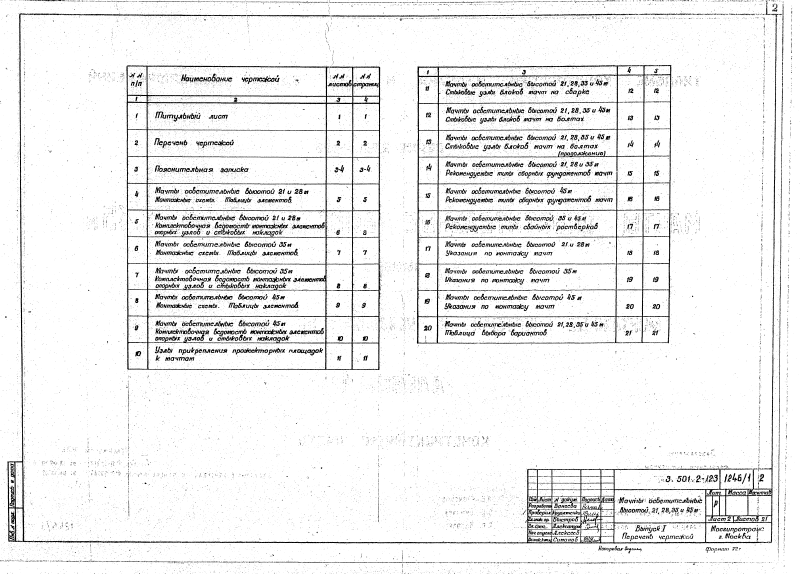 2
№№ п/п Наименование чертежей №№ листов №№ страниц
1 2 3 4
1 Титульный лист 1 1
2 Перечень чертежей 2 2
3 Пояснительная записка 3-4 3-4
4 Мачты осветительные высотой 21 и 28 м
Монтажные схемы. Таблицы элементов. 5 5
5 Мачты осветительные высотой 21 и 28 м
Комплектовочная ведомость монтажных элементов
опорных узлов и стыковых накладок 6 6
6 Мачты осветительные высотой 35 м
Монтажные схемы. Таблицы элементов. 7 7
7 Мачты осветительные высотой 35 м
Комплектовочная ведомость монтажных элементов
опорных узлов и стыковых накладок 8 8
8 Мачты осветительные высотой 45 м
Монтажные схемы. Таблицы элементов 9 9
9 Мачты осветительные высотой 45 м
Комплектовочная ведомость монтажных элементов
опорных узлов и стыковых накладок 10 10
10 Узлы прикрепления прожекторных площадок
к мачтам 11 11
1 3 4 5
11 Мачты осветительные высотой 21, 28, 35 и 45 м
Стыковые узлы блоков мачт на сварке 12 12
12 Мачты осветительные высотой 21, 28, 35 и 45 м
Стыковые узлы блоков мачт на болтах 13 13
13 Мачты осветительные высотой 21, 28, 35 и 45 м
Стыковые узлы блоков мачт на болтах
(продолжение) 14 14
14 Мачты осветительные высотой 21, 28 и 35 м
Рекомендуемые типы сборных фундаментов мачт 15 15
15 Мачты осветительные высотой 45 м
Рекомендуемые типы сборных фундаментов мачт 16 16
16 Мачты осветительные высотой 35 и 45 м
Рекомендуемые типы свайных ростверков 17 17
17 Мачты осветительные высотой 21 и 28 м
Указания по монтажу мачт 18 18
18 Мачты осветительные высотой 35 м
Указания по монтажу мачт 19 19
19 Мачты осветительные высотой 45 м
Указания по монтажу мачт 20 20
20 Мачты осветительные высотой 21, 28, 35 и 45 м
Таблица выбора вариантов 21 21
3.501.2-123 1246/1 2
Мачты осветительные
высотой 21, 28, 35 и 45 м
Лит. Масса Масштаб
Р
Лист 2 Листов 21
Выпуск I
Перечень чертежей
Мосгипротранс
г. Москва
Формат 22г